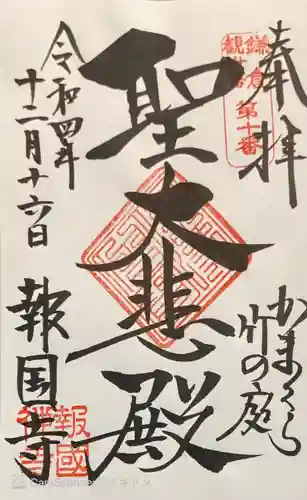 奉拝
鎌倉
観世音
第十番
かまくら
竹の庭
聖大悲殿
令和四年
十二月十六日
報国寺
報國
禅寺
CamScanner